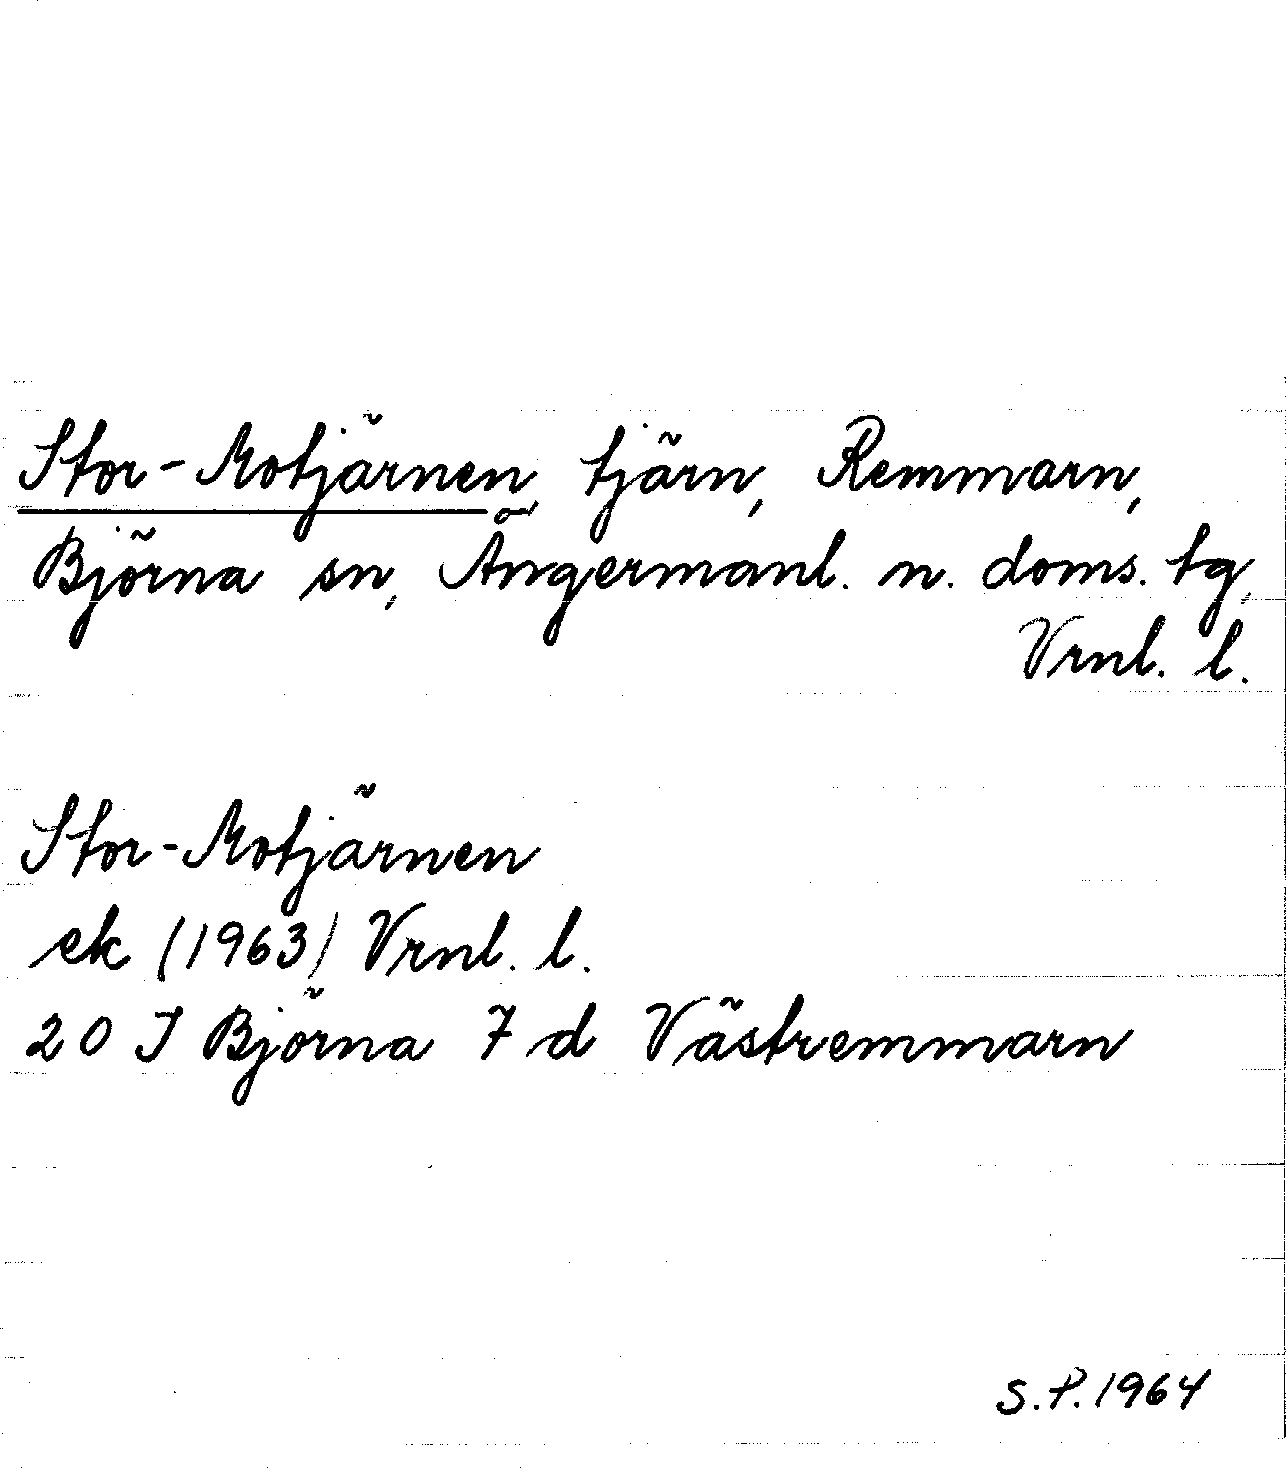 Stor-Motjärnen, tjärn, Remmarn,
Björna sn, Ångermanl. n. doms. tg,
Vrnl. l.
Stor-Motjärnen
ek (1963) Vrnl. l.
20 J Björna 7 d Västremmarn
S.P. 1964